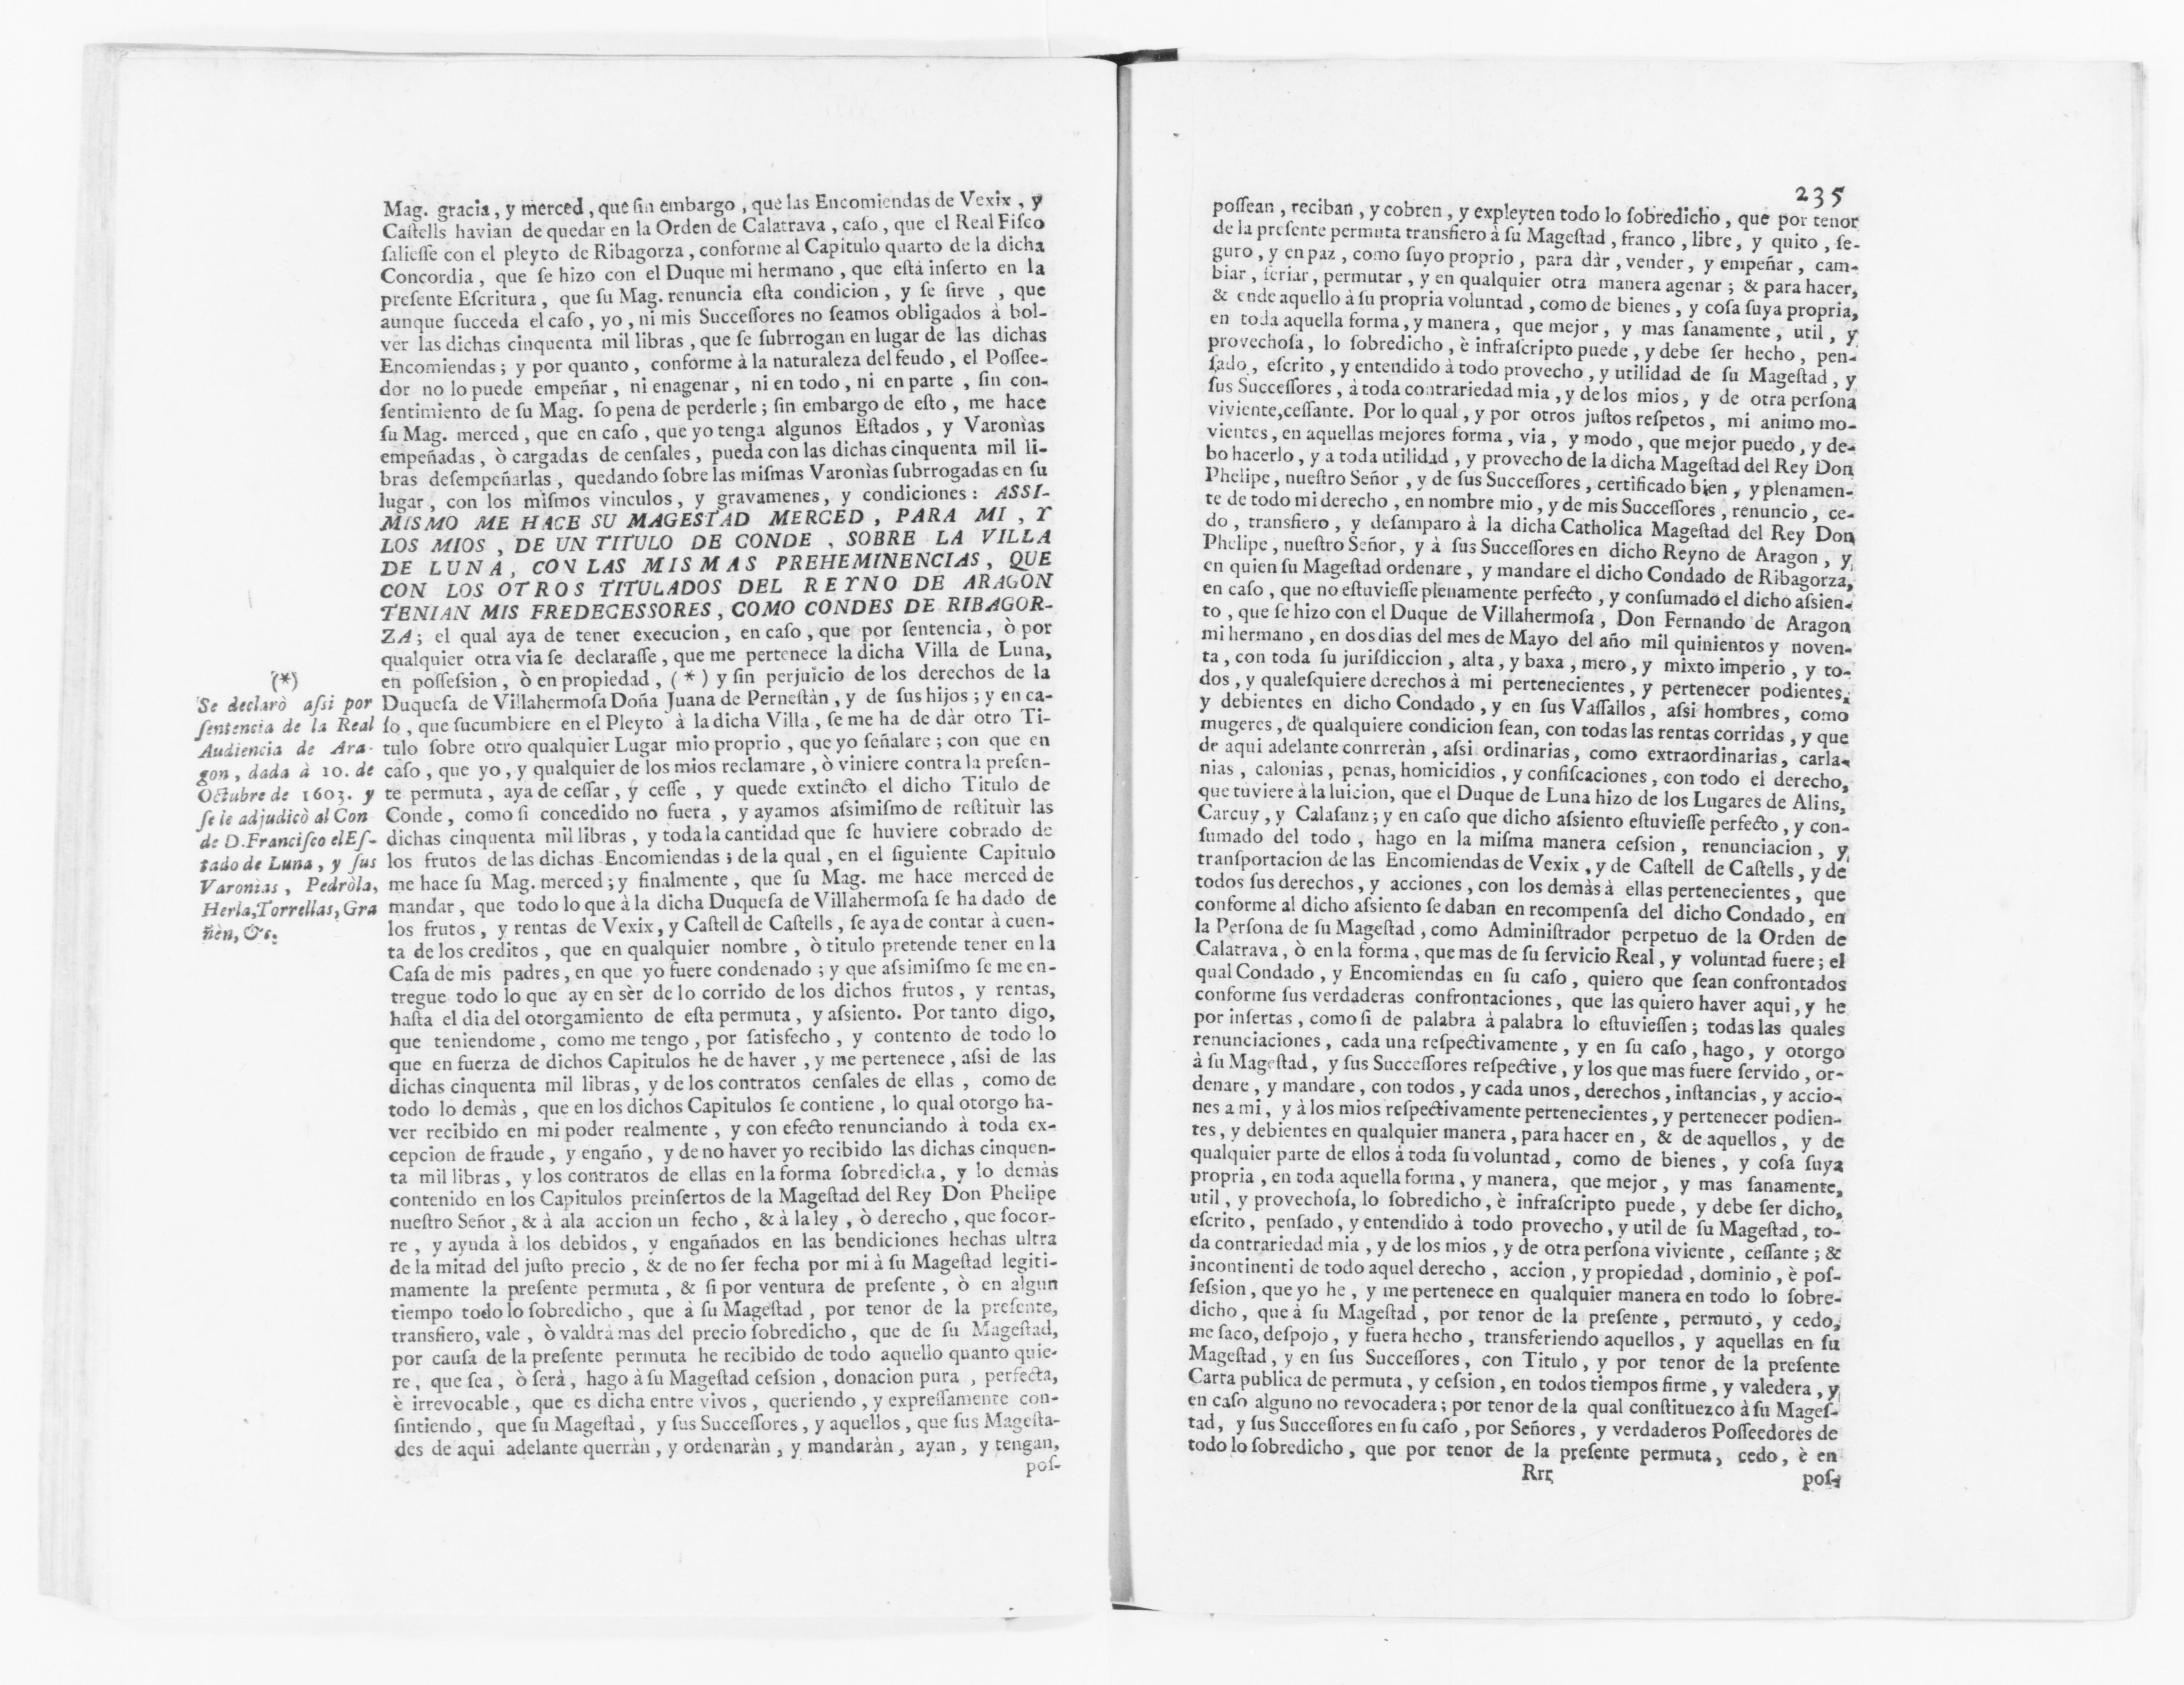 Mag. gracia, y merced, que ſin embargo, que las Encomiendas de Vexix, y
Caſtells havian de quedar en la Orden de Calatrava, caſo, que el Real Fiſco
ſalieſſe con el pleyto de Ribagorza, conforme al Capitulo quarto de la dicha
Concordia, que ſe hizo con el Duque mi hermano, que eſtá inſerto en la
preſente Eſcritura, que ſu Mag. renuncia eſta condicion, y ſe ſirve, que
aunque ſucceda el caſo, yo, ni mis Succeſſores no ſeamos obligados à bol-
ver las dichas cinquenta mil libras, que ſe ſubrrogan en lugar de las dichas
Encomiendas; y por quanto, conforme à la naturaleza del feudo, el Poſſee-
dor no lo puede empeñar, ni enagenar, ni en todo, ni en parte, ſin con-
ſentimiento de ſu Mag. ſo pena de perderle; ſin embargo de eſto, me hace
ſu Mag. merced, que en caſo, que yo tenga algunos Eſtados, y Varonìas
empeñadas, ò cargadas de cenſales, pueda con las dichas cinquenta mil li-
bras deſempeñarlas, quedando ſobre las miſmas Varonìas ſubrrogadas en ſu
lugar, con los miſmos vinculos, y gravamenes, y condiciones: ASSI-
MISMO ME HACE SU MAGESTAD MERCED, PARA MI, Y
LOS MIOS, DE UN TITULO DE CONDE, SOBRE LA VILLA
DE LUNA, CON LAS MISMAS PREHEMINENCIAS, QUE
CON LOS OTROS TITULADOS DEL REYNO DE ARAGON
TENIAN MIS PREDECESSORES, COMO CONDES DE RIBAGOR-
ZA; el qual aya de tener execucion, en caſo, que por ſentencia, ò por
qualquier otra via ſe declaraſſe, que me pertenece la dicha Villa de Luna,
en poſſeſsion, ò en propiedad, (*) y ſin perjuicio de los derechos de la
Duqueſa de Villahermoſa Doña Juana de Perneſtàn, y de ſus hijos; y en ca-
ſo, que ſucumbiere en el Pleyto à la dicha Villa, ſe me ha de dàr otro Ti-
tulo ſobre otro qualquier Lugar mio proprio, que yo ſeñalare; con que en
caſo, que yo, y qualquier de los mios reclamare, ò viniere contra la preſen-
te permuta, aya de ceſſar, y ceſſe, y quede extincto el dicho Titulo de
Conde, como ſi concedido no fuera, y ayamos aſsimiſmo de reſtituìr las
dichas cinquenta mil libras, y toda la cantidad que ſe huviere cobrado de
los frutos de las dichas Encomiendas; de la qual, en el ſiguiente Capitulo
me hace ſu Mag. merced; y finalmente, que ſu Mag. me hace merced de
mandar, que todo lo que à la dicha Duqueſa de Villahermoſa ſe ha dado de
los frutos, y rentas de Vexix, y Caſtell de Caſtells, ſe aya de contar à cuen-
ta de los creditos, que en qualquier nombre, ò titulo pretende tener en la
Caſa de mis padres, en que yo fuere condenado; y que aſsimiſmo ſe me en-
tregue todo lo que ay en sèr de lo corrido de los dichos frutos, y rentas,
haſta el dia del otorgamiento de eſta permuta, y aſsiento. Por tanto digo,
que teniendome, como me tengo, por ſatisfecho, y contento de todo lo
que en fuerza de dichos Capitulos he de haver, y me pertenece, aſsi de las
dichas cinquenta mil libras, y de los contratos cenſales de ellas, como de
todo lo demàs, que en los dichos Capitulos ſe contiene, lo qual otorgo ha-
ver recibido en mi poder realmente, y con efecto renunciando à toda ex-
cepcion de fraude, y engaño, y de no haver yo recibido las dichas cinquen-
ta mil libras, y los contratos de ellas en la forma ſobredicha, y lo demàs
contenido en los Capitulos preinſertos de la Mageſtad del Rey Don Phelipe
nueſtro Señor, & à ala accion un fecho, & à la ley, ò derecho, que ſocor-
re, y ayuda à los debidos, y engañados en las bendiciones hechas ultra
de la mitad del juſto precio, & de no ſer fecha por mi à ſu Mageſtad legiti-
mamente la preſente permuta, & ſi por ventura de preſente, ò en algun
tiempo todo lo ſobredicho, que à ſu Mageſtad, por tenor de la preſente,
transfiero, vale, ò valdrà mas del precio ſobredicho, que de ſu Mageſtad,
por cauſa de la preſente permuta he recibido de todo aquello quanto quie-
re, que ſea, ò ſerà, hago à ſu Mageſtad ceſsion, donacion pura, perfecta,
è irrevocable, que es dicha entre vivos, queriendo, y expreſſamente con-
ſintiendo, que ſu Mageſtad, y ſus Succeſſores, y aquellos, que ſus Mageſta-
des de aqui adelante querràn, y ordenaràn, y mandaràn, ayan, y tengan,
poſ-
(*)
Se declarò aſsi por
ſentencia de la Real
Audiencia de Ara-
gon, dada à 10. de
Octubre de 1603. y
ſe le adjudicò al Con
de D. Franciſco el Eſ-
tado de Luna, y ſus
Varonìas, Pedròla,
Herla, Torrellas, Gra
ñèn, &c.
235
poſſean, reciban, y cobren, y expleyten todo lo ſobredicho, que por tenor
de la preſente permuta transfiero à ſu Mageſtad, franco, libre, y quito, ſe-
guro, y en paz, como ſuyo proprio, para dàr, vender, y empeñar, cam-
biar, feriar, permutar, y en qualquier otra manera agenar; & para hacer,
& ende aquello à ſu propria voluntad, como de bienes, y coſa ſuya propria,
en toda aquella forma, y manera, que mejor, y mas ſanamente, util, y
provechoſa, lo ſobredicho, è infraſcripto puede, y debe ſer hecho, pen-
ſado, eſcrito, y entendido à todo provecho, y utilidad de ſu Mageſtad, y
ſus Succeſſores, à toda contrariedad mia, y de los mios, y de otra perſona
viviente, ceſſante. Por lo qual, y por otros juſtos reſpetos, mi animo mo-
vientes, en aquellas mejores forma, via, y modo, que mejor puedo, y de-
bo hacerlo, y a toda utilidad, y provecho de la dicha Mageſtad del Rey Don
Phelipe, nueſtro Señor, y de ſus Succeſſores, certificado bien, y plenamen-
te de todo mi derecho, en nombre mio, y de mis Succeſſores, renuncio, ce-
do, transfiero, y deſamparo à la dicha Catholica Mageſtad del Rey Don
Phelipe, nueſtro Señor, y à ſus Succeſſores en dicho Reyno de Aragon, y
en quien ſu Mageſtad ordenare, y mandare el dicho Condado de Ribagorza,
en caſo, que no eſtuvieſſe plenamente perfecto, y conſumado el dicho aſsien-
to, que ſe hizo con el Duque de Villahermoſa, Don Fernando de Aragon
mi hermano, en dos dias del mes de Mayo del año mil quinientos y noven-
ta, con toda ſu juriſdiccion, alta, y baxa, mero, y mixto imperio, y to-
dos, y qualeſquiere derechos à mi pertenecientes, y pertenecer podientes,
y debientes en dicho Condado, y en ſus Vaſſallos, aſsi hombres, como
mugeres, de qualquiere condicion ſean, con todas las rentas corridas, y que
de aqui adelante conrreràn, aſsi ordinarias, como extraordinarias, carla-
nias, calonias, penas, homicidios, y confiſcaciones, con todo el derecho,
que tuviere à la luicion, que el Duque de Luna hizo de los Lugares de Alins,
Carcuy, y Calaſanz; y en caſo que dicho aſsiento eſtuvieſſe perfecto, y con-
ſumado del todo, hago en la miſma manera ceſsion, renunciacion, y
tranſportacion de las Encomiendas de Vexix, y de Caſtell de Caſtells, y de
todos ſus derechos, y acciones, con los demàs à ellas pertenecientes, que
conforme al dicho aſsiento ſe daban en recompenſa del dicho Condado, en
la Perſona de ſu Mageſtad, como Adminiſtrador perpetuo de la Orden de
Calatrava, ò en la forma, que mas de ſu ſervicio Real, y voluntad fuere; el
qual Condado, y Encomiendas en ſu caſo, quiero que ſean confrontados
conforme ſus verdaderas confrontaciones, que las quiero haver aqui, y he
por inſertas, como ſi de palabra à palabra lo eſtuvieſſen; todas las quales
renunciaciones, cada una reſpectivamente, y en ſu caſo, hago, y otorgo
à ſu Mageſtad, y ſus Succeſſores reſpective, y los que mas fuere ſervido, or-
denare, y mandare, con todos, y cada unos, derechos, inſtancias, y accio-
nes a mi, y à los mios reſpectivamente pertenecientes, y pertenecer podien-
tes, y debientes en qualquier manera, para hacer en, & de aquellos, y de
qualquier parte de ellos à toda ſu voluntad, como de bienes, y coſa ſuya
propria, en toda aquella forma, y manera, que mejor, y mas ſanamente,
util, y provechoſa, lo ſobredicho, è infraſcripto puede, y debe ſer dicho,
eſcrito, penſado, y entendido à todo provecho, y util de ſu Mageſtad, to-
da contrariedad mia, y de los mios, y de otra perſona viviente, ceſſante; &
incontinenti de todo aquel derecho, accion, y propiedad, dominio, è poſ-
ſeſsion, que yo he, y me pertenece en qualquier manera en todo lo ſobre-
dicho, que à ſu Mageſtad, por tenor de la preſente, permuto, y cedo,
me ſaco, deſpojo, y fuera hecho, transferiendo aquellos, y aquellas en ſu
Mageſtad, y en ſus Succeſſores, con Titulo, y por tenor de la preſente
Carta publica de permuta, y ceſsion, en todos tiempos firme, y valedera, y
en caſo alguno no revocadera; por tenor de la qual conſtituezco à ſu Mageſ-
tad, y ſus Succeſſores en ſu caſo, por Señores, y verdaderos Poſſeedores de
todo lo ſobredicho, que por tenor de la preſente permuta, cedo, è en
Rrr
poſ-